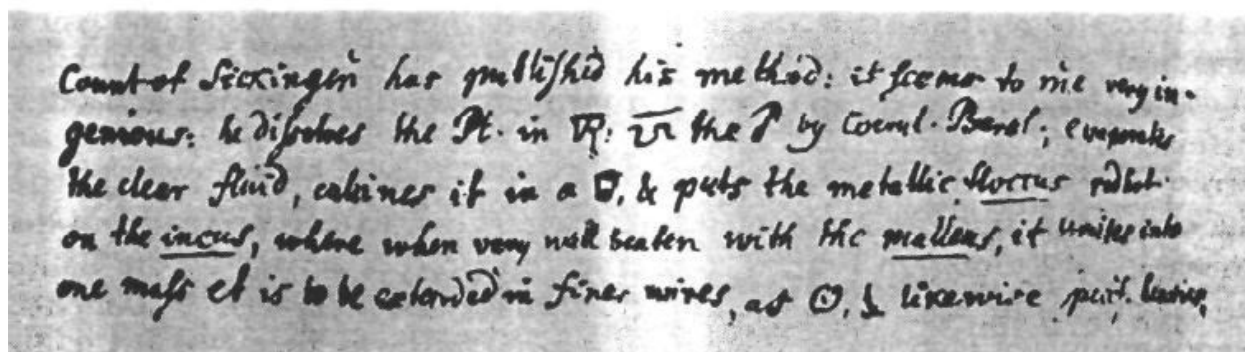 Count of Sickingen has publishid his method: it seems to me very in-
genious: he dissolves the Pt. in the by Coerul. Berol; evaporates
the clear fluid, calcines it in a & puts the metallic floccus redhot
on the incus, where when very well beaten with the malleus, it unites into
one mass et is to be extended in finer wires, as ☉, & likewise